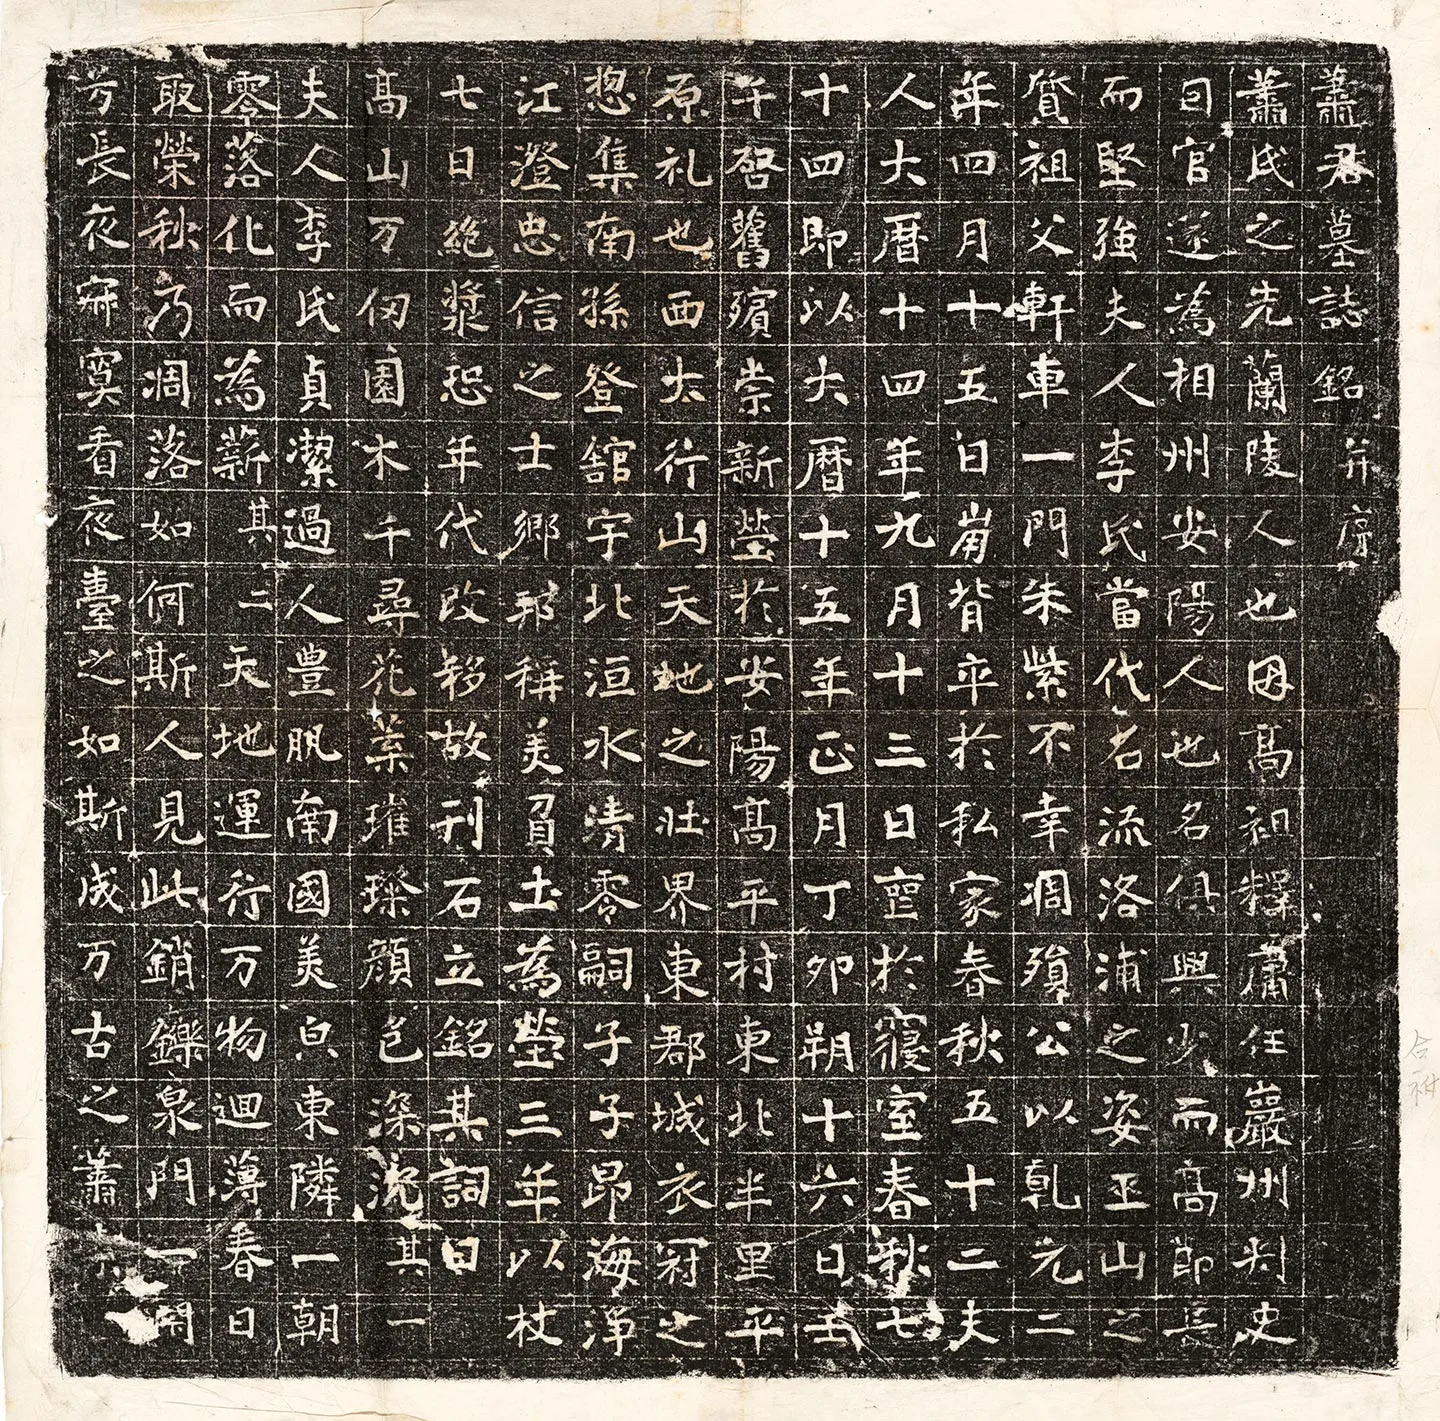 蕭君墓誌銘并序
蕭氏之先蘭陵人也因高祖釋庸任巖州刾史
因官遂為相州安陽人也名俱興少而高節長
而堅強夫人李氏當代名流洛浦之姿玉山之
質祖父軒車一門朱紫不幸凋殞公以乹元二
年四月十五日崗背卒於私家春秋五十二夫
人大曆十四年九月十三日薨於寢室春秋七
十四即以大曆十五年正月丁卯朔十六日壬
午啓舊殯崇新塋於安陽高平村東北半里平
原礼也西太行山天地之壯界東郡城衣冠之
惣集南孫登舘宇北洹水清零嗣子子昂海淨
江澄忠信之士鄉邦稱美負土為塋三年以杖
七日絕漿恐年代改移故刊石立銘其詞曰
高山万仞園木千尋花菜璀璨顏色深沉其一
夫人李氏貞潔過人豊肌南國美皃東隣一朝
零落化而為薪其二天地運行万物迴薄春日
取榮秋乃凋落如何斯人見此銷鑠泉門一閇
芳長夜寂寞看夜臺之如斯成万古之蕭索
合祔